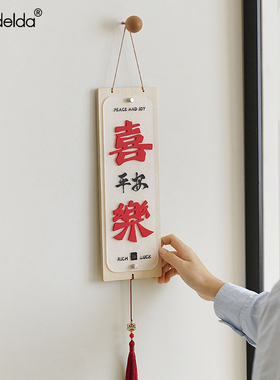 delda®
PEACE AND JOY
喜
平安
樂
RICH LUCK